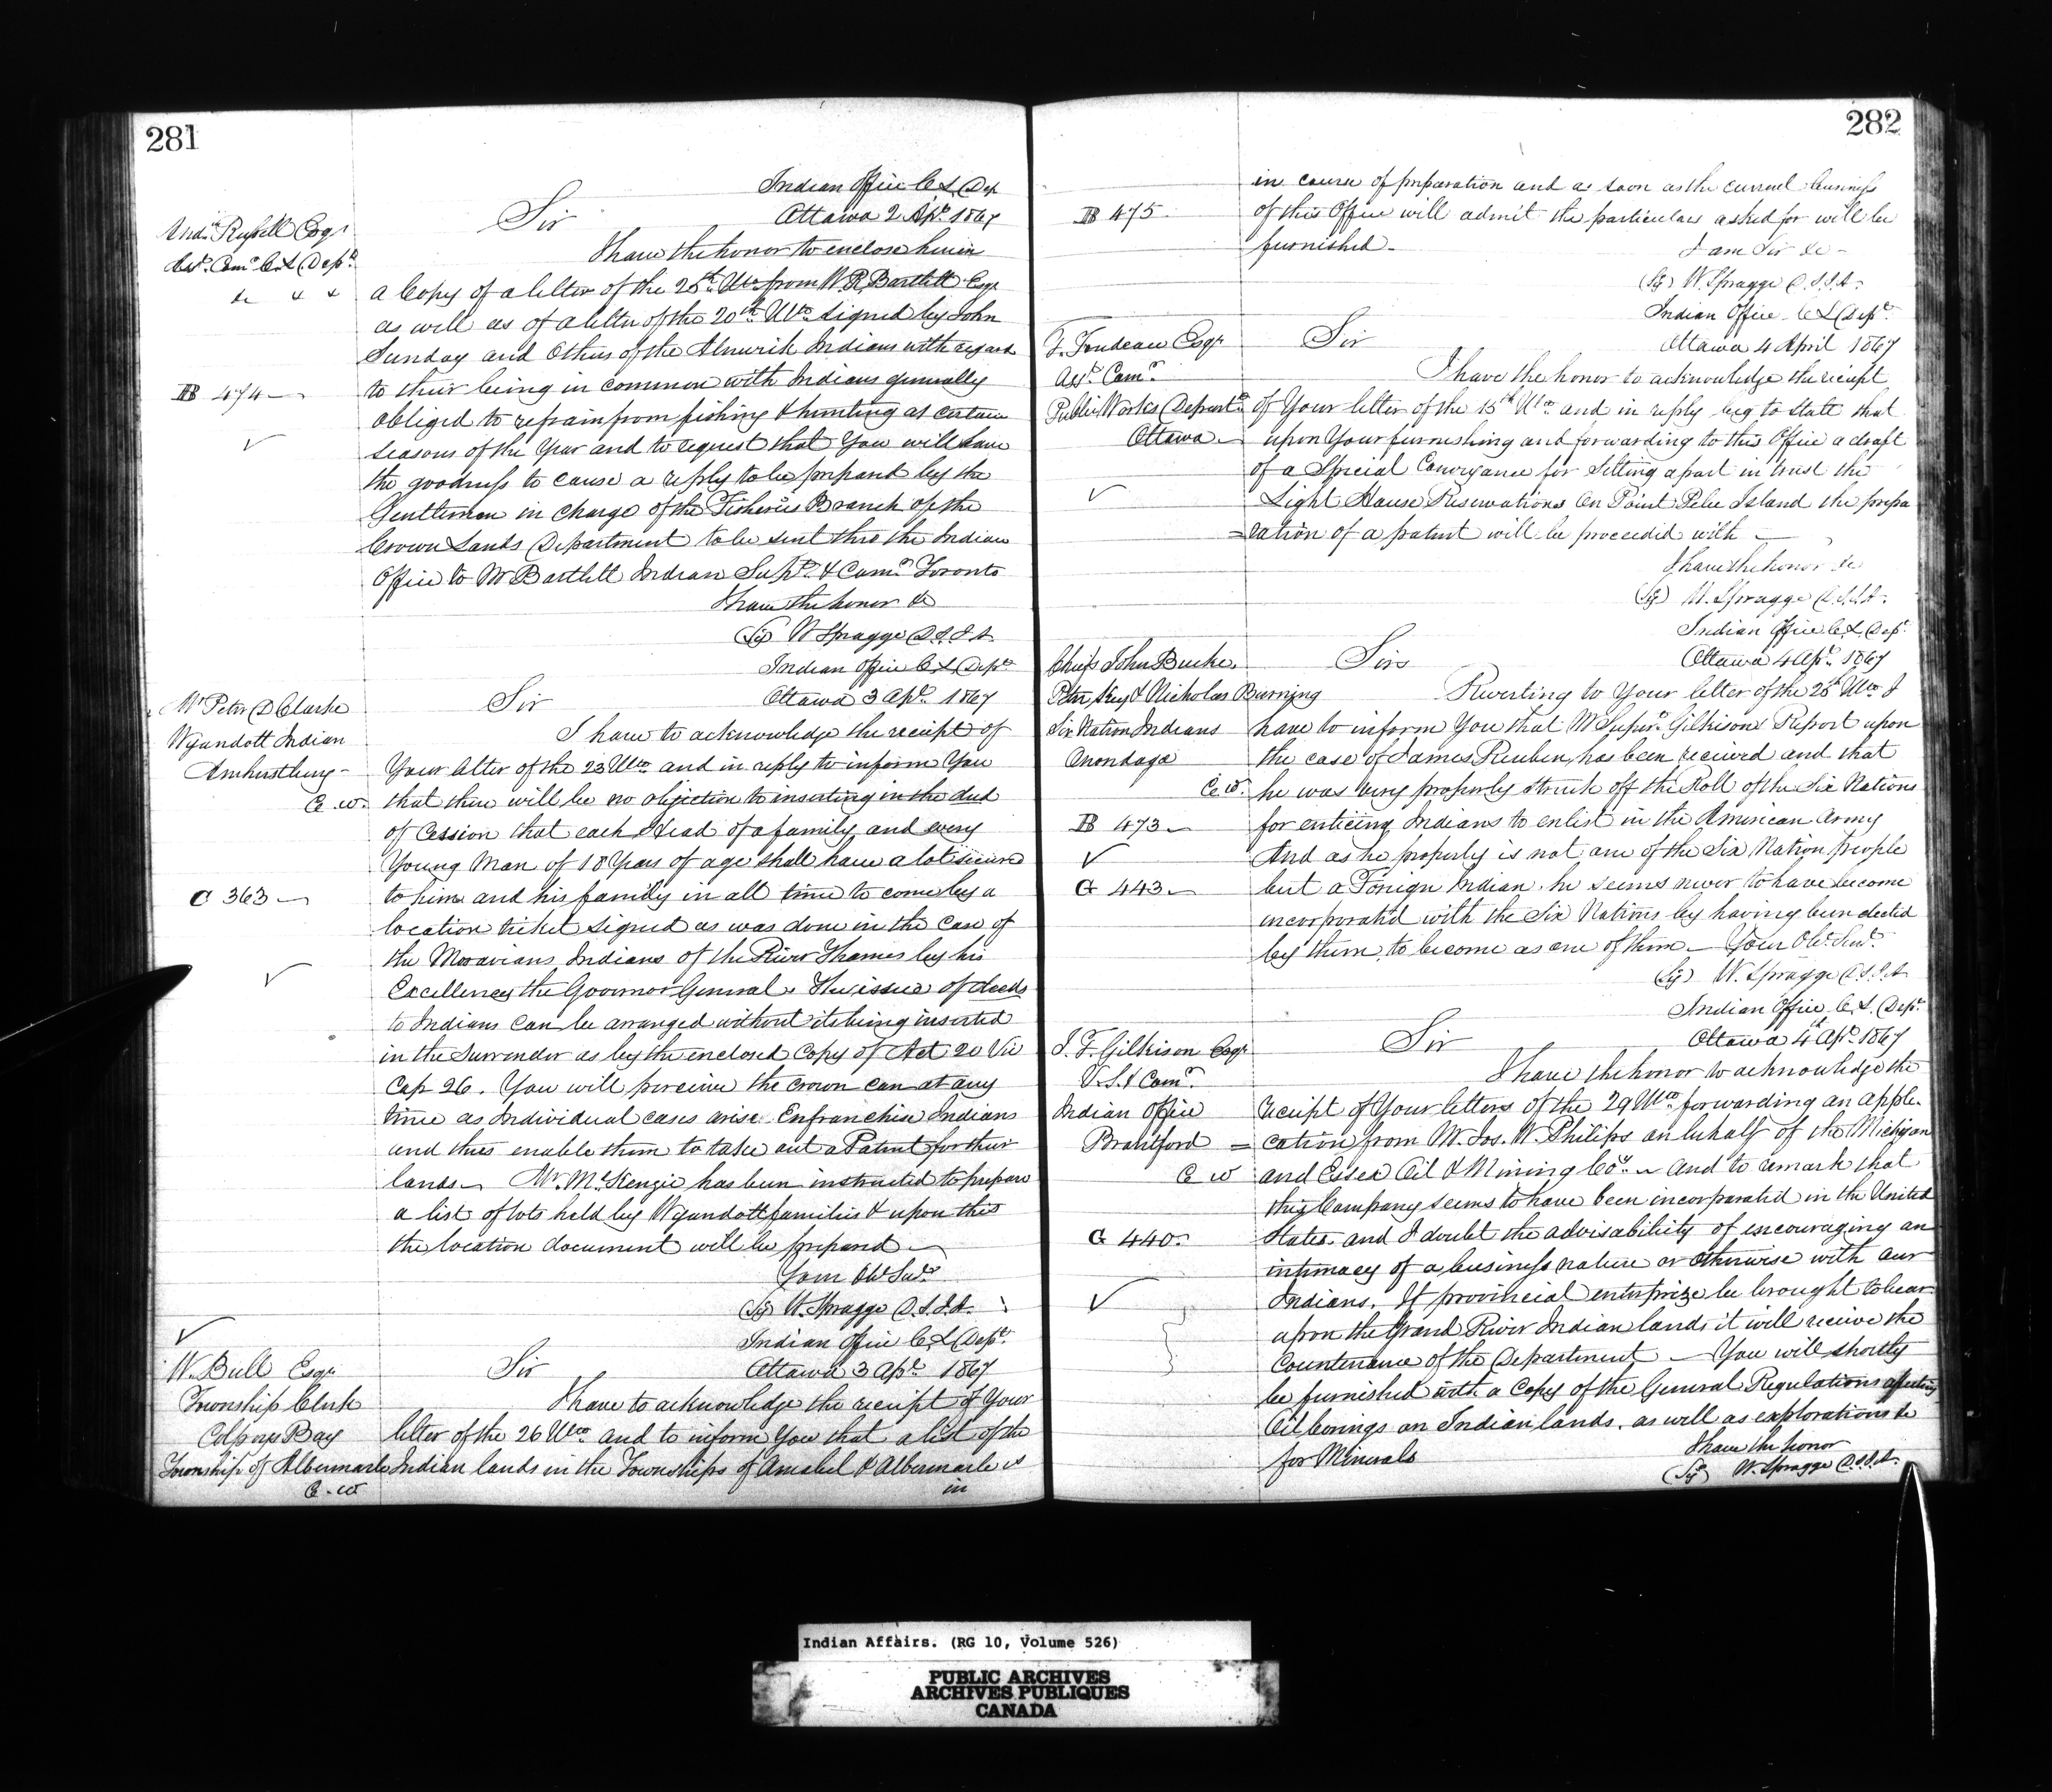 281
Indian Office C L Dep
Ottawa 2 Apl. 1867
Andw Russell Esqr
Asst. Comr C.L Dept.
&c & &
B 474
Sir
I have the honor to enclose herein
a Copy of a letter of the 25th Ulto from W. R. Bartlett Esqr
as well as of a letter of the 20th Ulto signed by John
Sunday and Others of the Alnwick Indians with regard
to their being in common with Indians generally
obliged to refrain from fishing & hunting at certain
seasons of the Year and to request that You will have
the goodness to cause a reply to be prepared by the
Gentleman in charge of the Fisheries Branch of the
Crown Lands Department to be sent thro the Indian
Office to Mr Bartlett Indian Supt. & Comr Toronto
I have the honor &c
(Sig) W Spragge D.S.I.A.
Indian Office C.L Dept
Ottawa 3 Apl. 1867
Mr Peter D Clarke
Wyandott Indian
Amherstburg -
C. W.
C 363
Sir
I have to acknowledge the receipt of
Your letter of the 23 Ulto and in reply to inform You
that there will be no objection to inserting in the deed
of Cession that each Head of a family and every
Young Man of 18 Years of age shall have a lot secured
to him and his family in all time to come by a
location ticket signed as was done in the Case of
the Moravians Indians of the River Thames by his
Excellency the Governor General. The issue of deeds
to Indians can be arranged without its being inserted
in the Surrender as by the enclosed Copy of Act 20 Vic
Cap 26. You will perceive the crown can at any
time as Individual cases arise Enfranchise Indians
and thus enable them to take out a Patent for their
lands - Mr. McKenzie has been instructed to prepare
a list of lots held by Wyandott families & upon this
the location document will be prepared -
Your Obt Servt
(Sig) W. Spragge D.S.I.A.
Indian Office C.L Dept.
Ottawa 3 Apl. 1867
W. Bull Esqr
Township Clerk
Colpoys Bay
Township of Albermarle
C. W
Sir
I have to acknowledge the receipt of Your
letter of the 26 Ulto and to inform You that a list of the
Indian lands in the Townships of Amabel & Albermarle is
in
282
in course of preparation and as soon as the current business
B 475
of this Office will admit the particulars asked for will be
furnished -
I am Sir &c -
(Sig) W. Spragge D.S.I.A.
Indian Office C L Dept.
Ottawa 4 April 1867
F. Trudeau Esqr
Asst. Comr.
Public Works Departt
Ottawa
Sir
I have the honor to acknowledge the receipt
of Your letter of the 15th Ulto and in reply beg to state that
upon Your furnishing and forwarding to this Office a draft
of a Special Conveyance for Setting apart in trust the
Light House Reservations on Point Pelee Island the prepa
=ration of a patent will be proceeded with -
I have the honor &c
(Sig) W. Spragge D.S.I.A.
Indian Office C.L. Dept.
Ottawa 4 Apl. 1867
Chiefs John Bucke,
Peter Key & Nicholas Burning
Six Nation Indians
Onondaga
C W.
B 473
G 443
Sirs
Reverting to Your letter of the 25th Ulto I
have to inform You that Mr Supr. Gilkisons Report upon
the case of James Reuben, has been received and that
he was very properly struck off the Roll of the Six Nations
for enticing Indians to enlist in the American Army
And as he properly is not one of the Six Nation people
but a Foreign Indian, he seems never to have become
incorporated with the Six Nations by having been elected
by them, to become as one of them - Your Obt Servt.
(Sig) W. Spragge D.S.I.A.
Indian Office C.L. Dept.
Ottawa 4th Apl. 1867
J. T. Gilkison Esqr
V.S. & Comr.
Indian Office
Brantford
C W
G 440
Sir
I have the honor to acknowledge the
receipt of Your letters of the 29 Ulto forwarding an appli-
=cation from W. Jos. W. Philips on behalf of the Michigan
and Essex Oil & Mining Coy. - And to remark that
this Company seems to have been incorporated in the United
States, and I doubt the advisability of encouraging an
intimacy of a business nature or otherwise with our
Indians. If provincial enterprize be brought to bear
upon the Grand River Indian lands it will receive the
Countenance of the Department - You will shortly
be furnished with a Copy of the General Regulations affecting
Oil borings on Indian lands, as well as explorations &c
for Minerals
I have the honor
(Sigd) W. Spragge D.S.I.A.
Indian Affairs. (RG 10, Volume 526)
PUBLIC ARCHIVES
ARCHIVES PUBLIQUES
CANADA